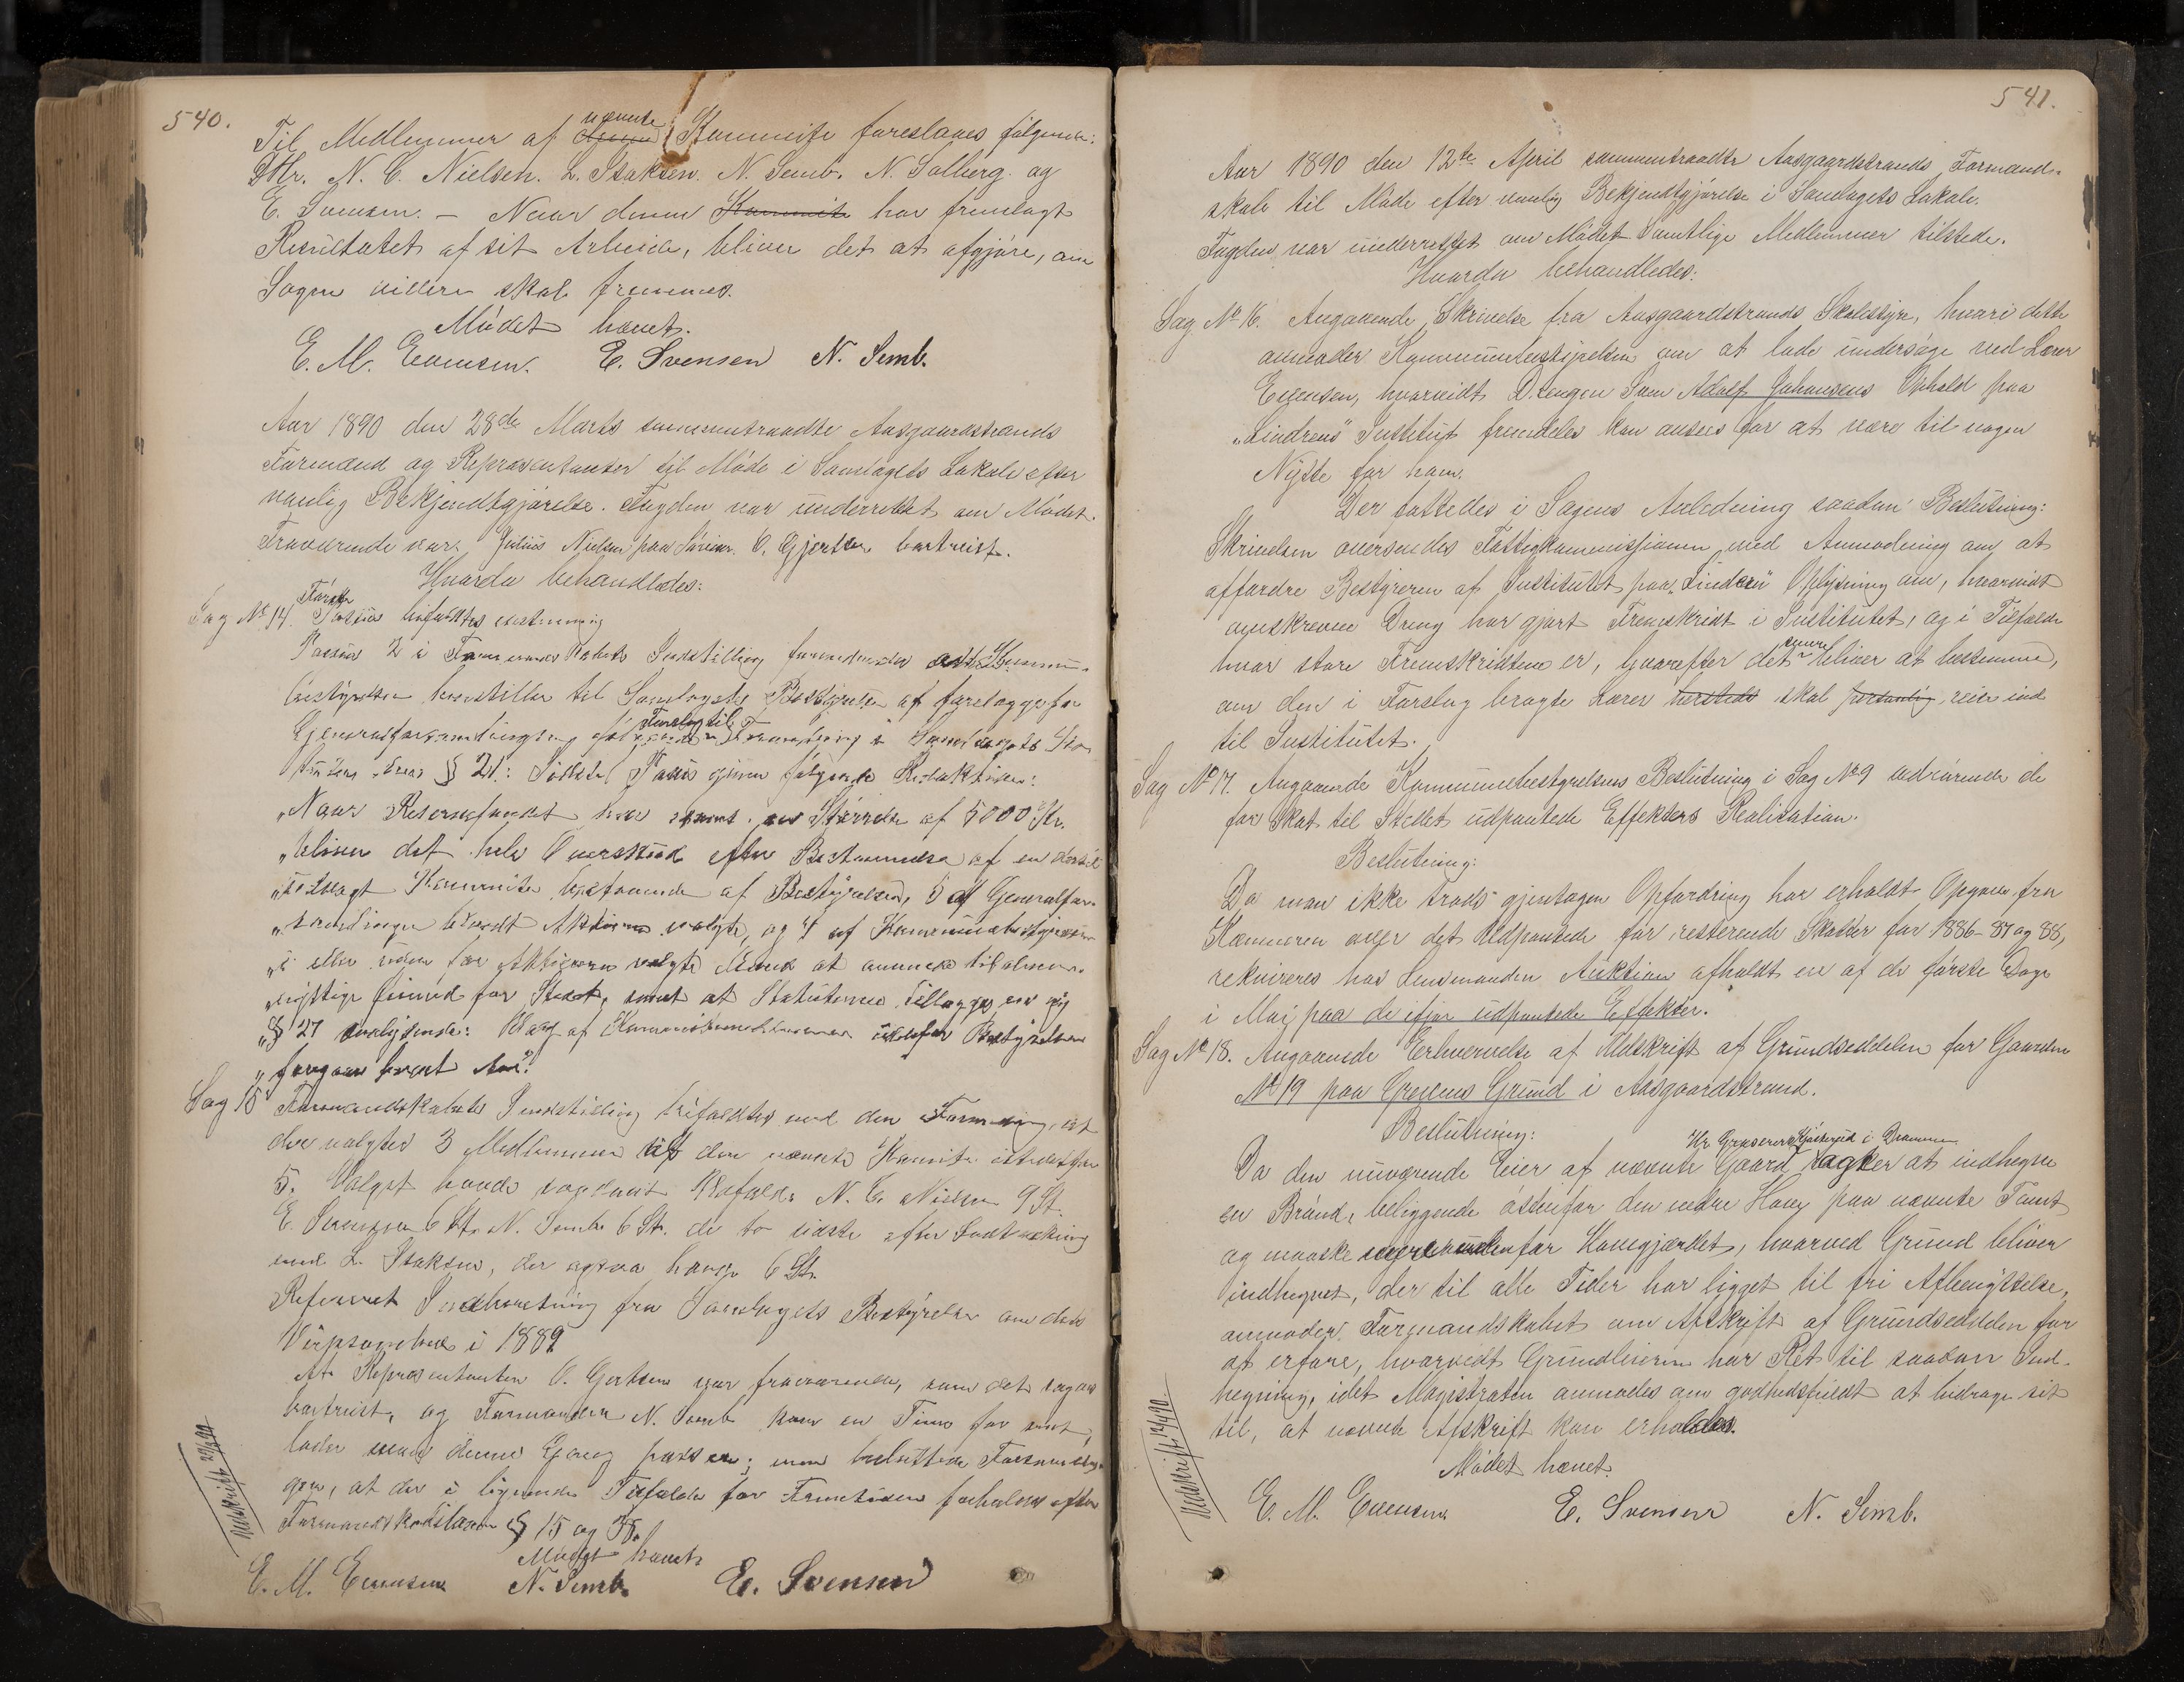 540.
nævnte
Til Medlemmer af denne Kommite foreslaaes følgende:
DHr. N. C. Nielsen. L. Isaksen. N. Semb. N. Solberg. og
E. Svensen. — Naar denne Kommite har fremlagt
Resultatet af sit Arbeide, bliver det at afgjøre, om
Sagen videre skal fremmes.
Mødet hævet.
E. M. Evensen. E. Svensen N. Semb.
Aar 1890 den 28de Marts sammentraadte Aasgaardstrands
Formænd og Repræsentanter til Møde i Samlagets Lokale efter
vanlig Bekjendtgjørelse. Fogden var underrettet om Mødet.
Fraværende var Julius Nielsen paa Søreise. O. Gjertsen bortreist.
Hvorda behandledes:
Første
Sag No 14. Passus bifaldtes enstemmig
Passus 2 i Formandskabets Indstilling forandredes at Kommu-
bestyrelsen henstiller til Samlagets Bestyrelse at forelægge for
Forslag til
Generalforsamlingen Forandring i Samlagets Sta-
tuters § 21: Sidste Passus gives følgende Redaktion:
„Naar Reservefondet har naaet en Størrelse af 5000 Kr.
„bliver det hele Overskud efter Bestemmelse af en dertil
„udvalgt Kommite bestaaende af Bestyrelsen, 5 af Generalfor-
„samlingen blandt Aktierne valgte, og 4 af Kommunebestyrelsen
„i eller uden for Aktierne valgte Mænd at anvende til almen-
„nyttige Øiemed for Stedet, samt at Statuterne tillægges en ny
„§ 27 saalydende: Valg af Kommitemedlemmer udenfor Bestyrelsen
„foregaar hvert Aar."
Sag 15 Formandskabets Indstilling bifaldtes med den Forandring, at
der valgtes 3 Medlemmer af den nævnte Komite istedetfor
5. Valget havde saadant Udfald: N. C. Nielsen 9 St.
E. Svensen 6 St. N. Semb 6 St. de to sidste efter Lodtrækning
med L. Isaksen, der ogsaa havde 6 St.
Refereret Indberetning fra Samlagets Bestyrelse om dets
Virksomhed i 1889
At Repræsentanten O. Gjertsen var fraværende, som det sagdes
bortreist, og Formanden N. Semb kom en Time for sent,
lader man denne Gang passere; men besluttede Forsamlin-
gen, at der i lignende Tilfælde for Fremtiden forholdes efter
Formandskabslovens § 15 og
Mødet hævet
E. M. Evensen N. Semb. E. Svensen
Udskrift 29/4 90
541.
Aar 1890 den 12te April sammentraadte Aasgaardstrands Formand-
skab til Møde efter vanlig Bekjendtgjørelse i Samlagets Lokale.
Fogden var underrettet om Mødet. Samtlige Medlemmer tilstede.
Hvorda behandledes:
Sag No 16. Angaaende Skrivelse fra Aasgaardstrands Skolestyre, hvori dette
anmoder Kommunebestyrelsen om at lade undersøge ved Lærer
Evensen, hvorvidt Drengen Sven Adolf Johansens Ophold paa
„Lindøens" Institut fremdeles kan ansees for at være til nogen
Nytte for ham.
Der fattedes i Sagens Anledning saadan Beslutning:
Skrivelsen oversendes Fattigkommissionen med Anmodning om at
affordre Bestyreren af Institutet paa „Lindøen" Oplysning om, hvorvidt
omskrevne Dreng har gjort Fremskridt i Institutet, og i Tilfælde
senere
hvor store Fremskridtene er, hvorefter det bliver at bestemme,
om den i Forslag bragte Lærer herstede skal personlig reise ind
til Institutet.
Sag No 17. Angaaende Kommunebestyrelsens Beslutning i Sag No 9 vedrørende de
for Skat til Stedet udpantede Effekters Realisation.
Beslutning:
Da man ikke trods gjentagen Opfordring har erholdt Opgave fra
Kæmneren over det Udpantede for resterende Skatter for 1886-87 og 88,
rekvireres hos Lensmanden Auktion afholdt en af de første Dage
i Mai paa de ifjor udpantede Effekter.
Sag No 18. Angaaende Erhvervelse af Udskrift af Grundseddelen for Gaarden
No 19 paa Grevens Grund i Aasgaardstrand.
Beslutning:
Hr. Grosserer Kjøsterud i Drammen
Da den nuværende Eier af nævnte Gaard agter at indhegne
en Brønd, beliggende østenfor den nedre Have paa nævnte Tomt
og maaske mere udenfor Havegjærdet, hvorved Grund bliver
indhegnet, der til alle Tider har ligget til fri Afbenyttelse,
anmoder Formandskabet om Afskrift af Grundseddelen for
at erfare, hvorvidt Grundeieren har Ret til saadan Ind-
hegning, idet Magistraten anmodes om godhedsfuldt at bidrage sit
til, at nævnte Afskrift kan erholdes.
Mødet hævet.
E. M. Evensen E. Svensen N. Semb.
Udskrift 12/4 90.